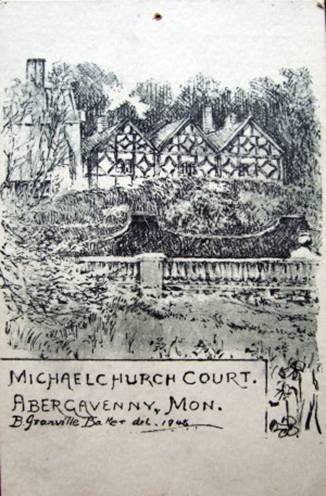 MICHAELCHURCH COURT.
ABERGAVENNY, MON.
B. Granville Baker del. 1946